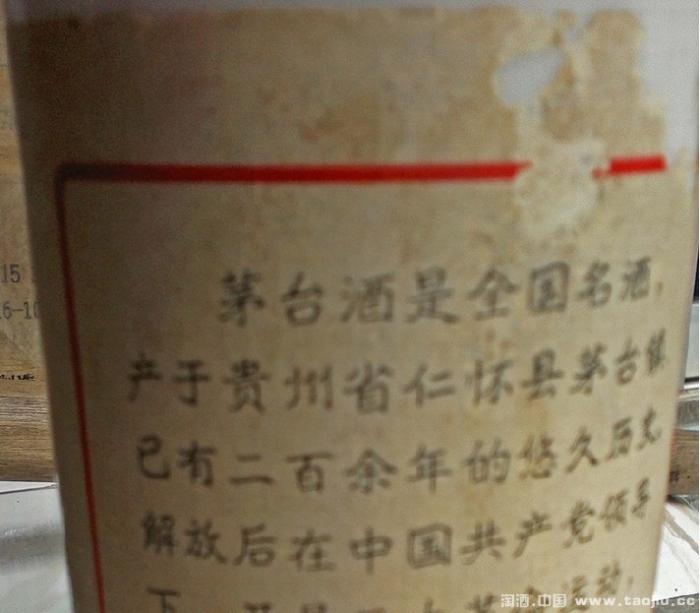 茅台酒是全国名酒,
产于贵州省仁怀县茅台镇,
已有二百余年的悠久历史,
解放后在中国共产党领导
下
运动,
15
6-10
淘酒.中国 www.taojiu.cc